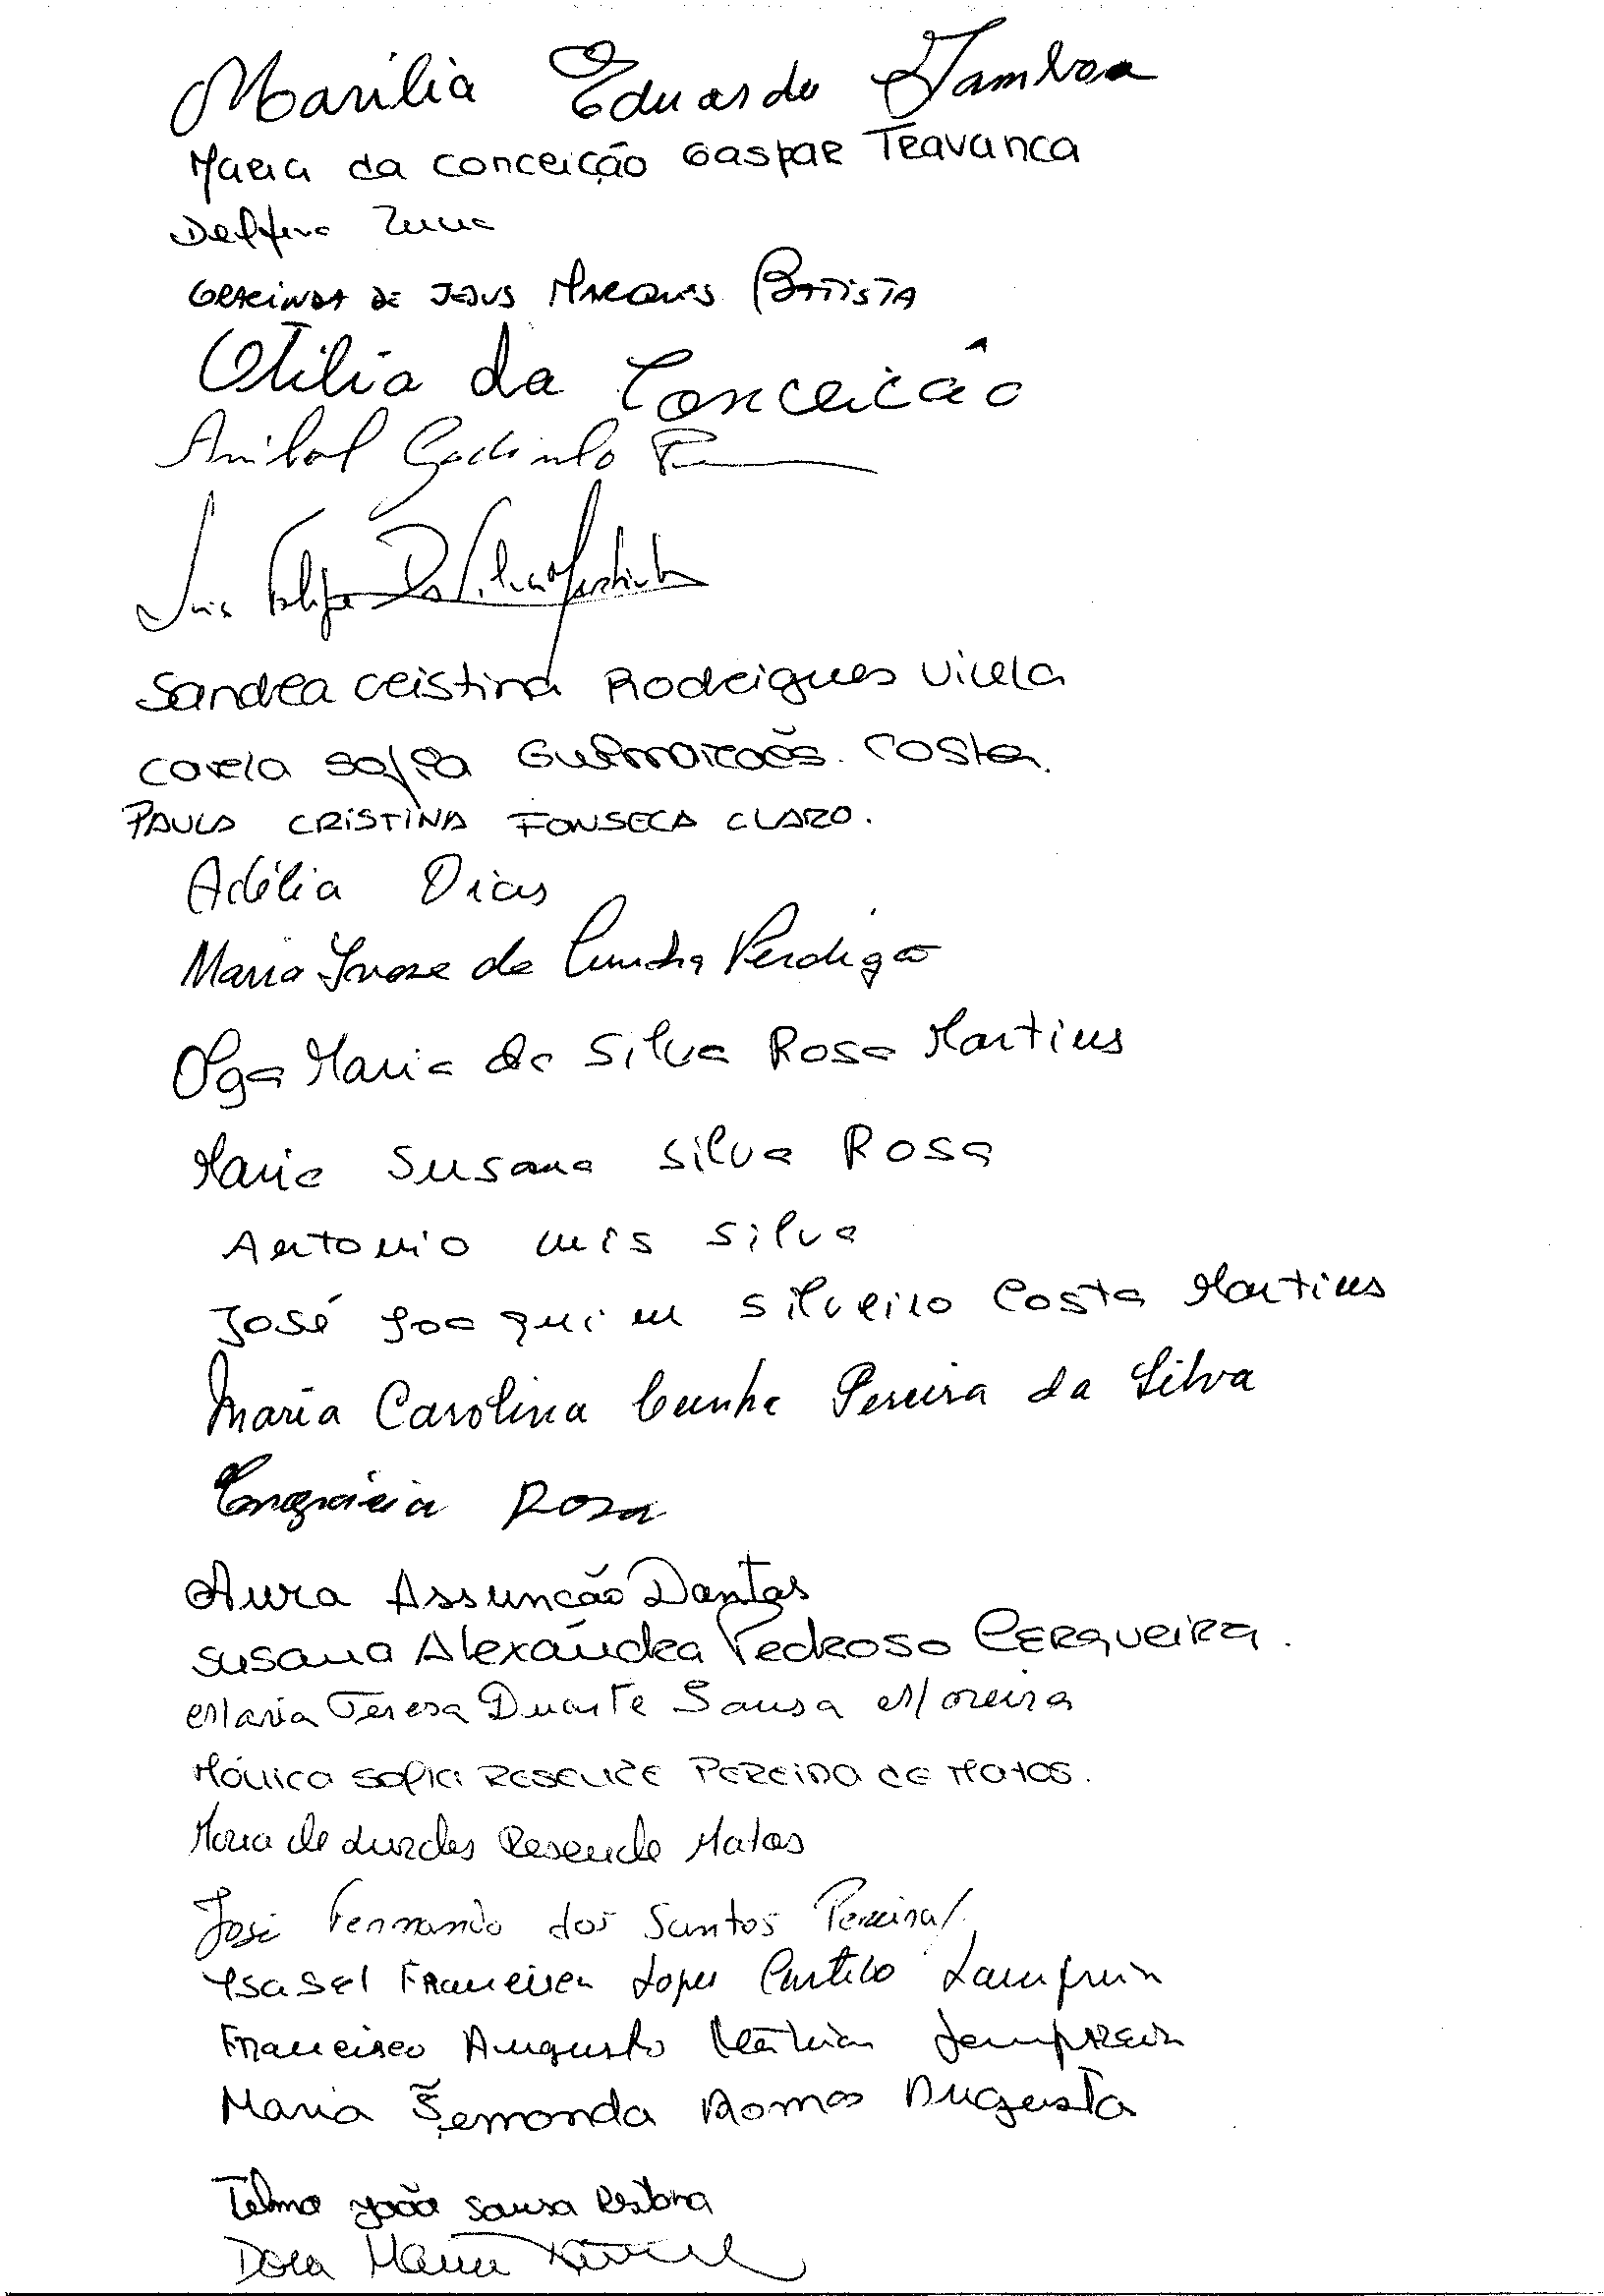 Marilia Eduarda Gamboa
Maria da Conceição Gaspar Travanca
Delfina
GRACINDA DE JESUS MARQUES BATISTA
Otilia da Conceicão
Anibal Godinho
Luis Filipe Da Silva Martinho
Sandra Cristina Rodrigues Vilela
Carla Sofia Guimarães. Costa.
PAULA CRISTINA FONSECA CLARO.
Adélia Dias
Maria Ivone da Cunha Perdigão
Olga Maria da Silva Rosa Martins
Maria Susana Silva Rosa
Antonio Luis Silva
José Joaquim Silveiro Costa Martins
Maria Carolina Cunha Pereira da Silva
Engrácia Rosa
Aura Assunção Dantas
Susana Alexandra Pedroso Cerqueira.
Maria Teresa Duarte Sousa Moreira
Mónica Sofia RESENDE PEREIRA DE MATOS.
Maria de Lurdes Resende Matos
José Fernando dos Santos Pereira
Isabel Francisca Lopes Castilo Lampreia
Francisco Augusto Lampreia
Maria Fernanda Ramos Augusta
Telma João Sousa
Dora Maria